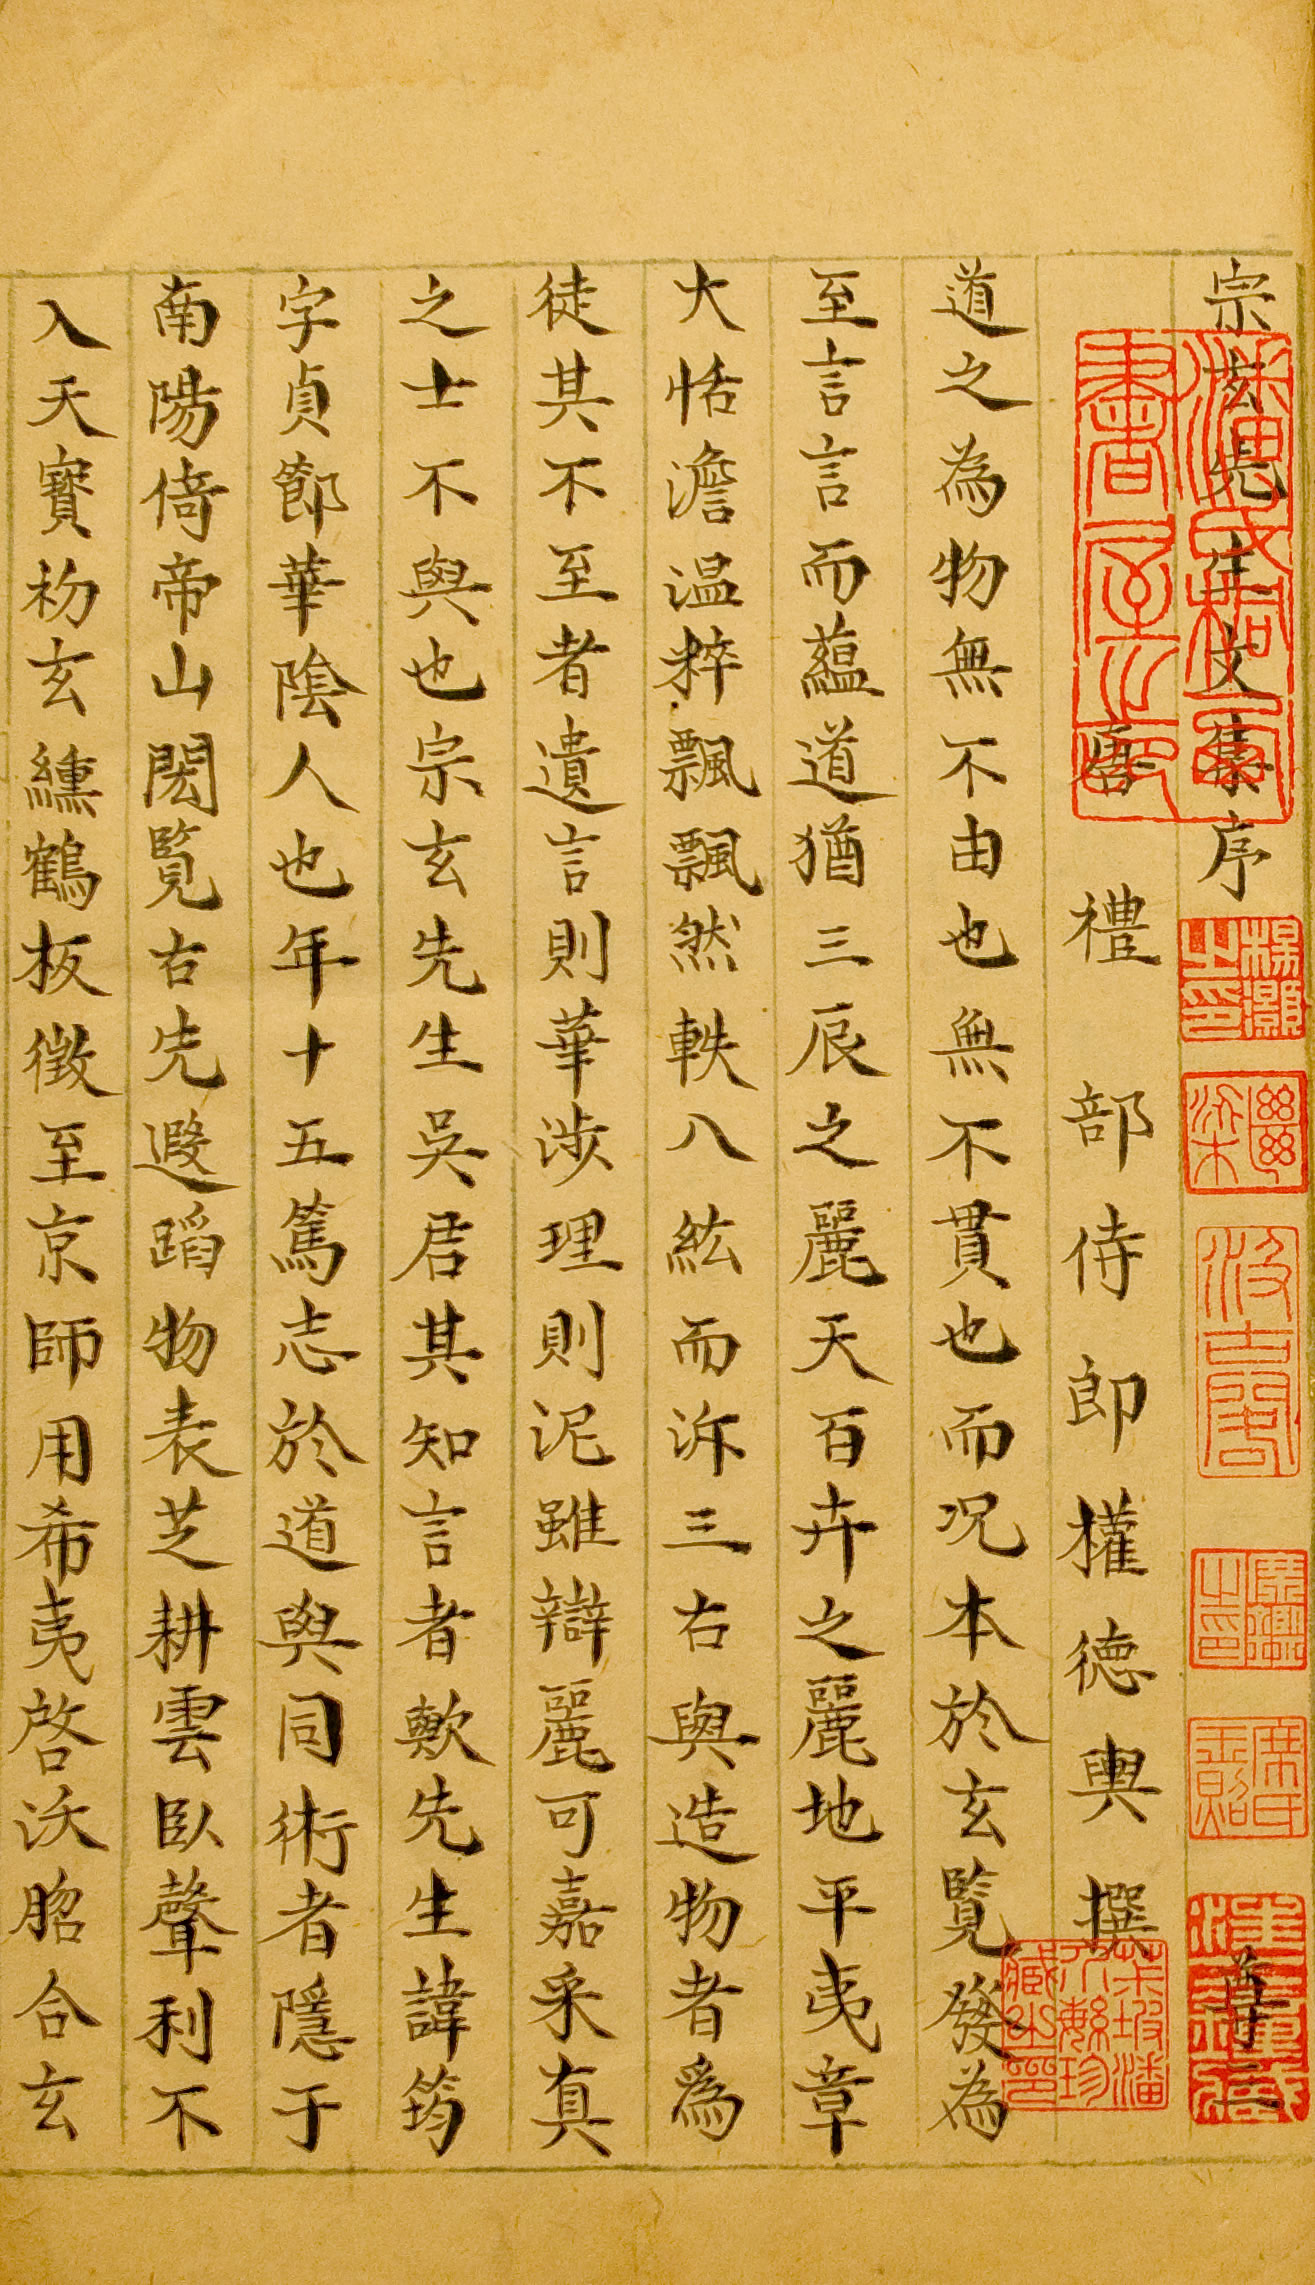 宗玄先生文集序
尊三
唐禮部侍郎權德輿撰
道之為物無不由也無不貫也而況本於玄覽發為
至言言而蘊道猶三辰之麗天百卉之麗地平夷章
大恬澹温粹飄飄然軼八紘而泝三右與造物者爲
徒其不至者遺言則華涉理則泥雖辯麗可嘉采真
之士不與也宗玄先生吳君其知言者歟先生諱筠
字貞節華陰人也年十五篤志於道與同術者隱于
南陽倚帝山閎覽右先遐蹈物表芝耕雲臥聲利不
入天寶初玄纁鶴板徵至京師用希夷啓沃脗合玄
楊灝之印
繼梁
汲古閣
席鑑之印
席氏玉照